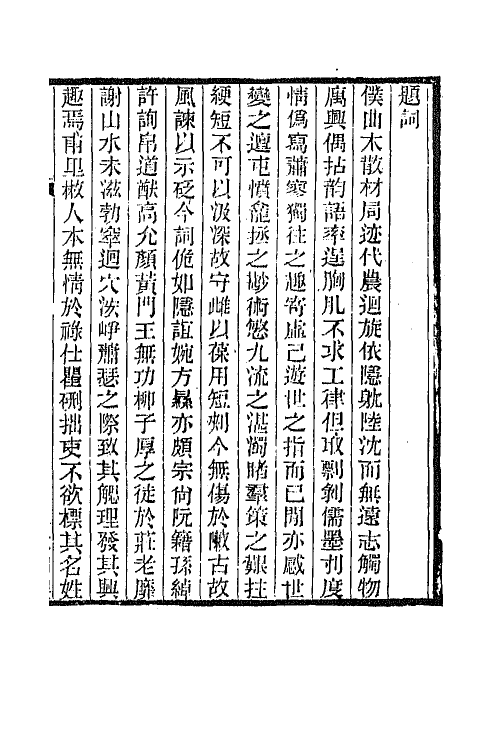 題詞
僕曲木散材局迹代農迴旋依隱躭陸沈而無遠志觸物
厲興偶拈韵語率逞胸肊不求工律但取剽剝儒墨刌度
情僞寫蕭寥獨往之趣寄虛己遊世之指而已閒亦感世
變之邅屯憤龕拯之尟術慜九流之湛濁睹羣策之娖拄
綆短不可以汲深故守雌以葆用短刺今無傷於陳古故
風諫以示砭今詞佹如隱誼婉方纍亦頗宗尙阮籍孫綽
許詢帛道猷高允顏黃門王無功柳子厚之徒於莊老靡
謝山水未滋勃窣迴穴泬崢蕭瑟之際致其鰓理發其興
趣焉甫里散人本無情於祿仕罌硎拙吏不欲標其名姓